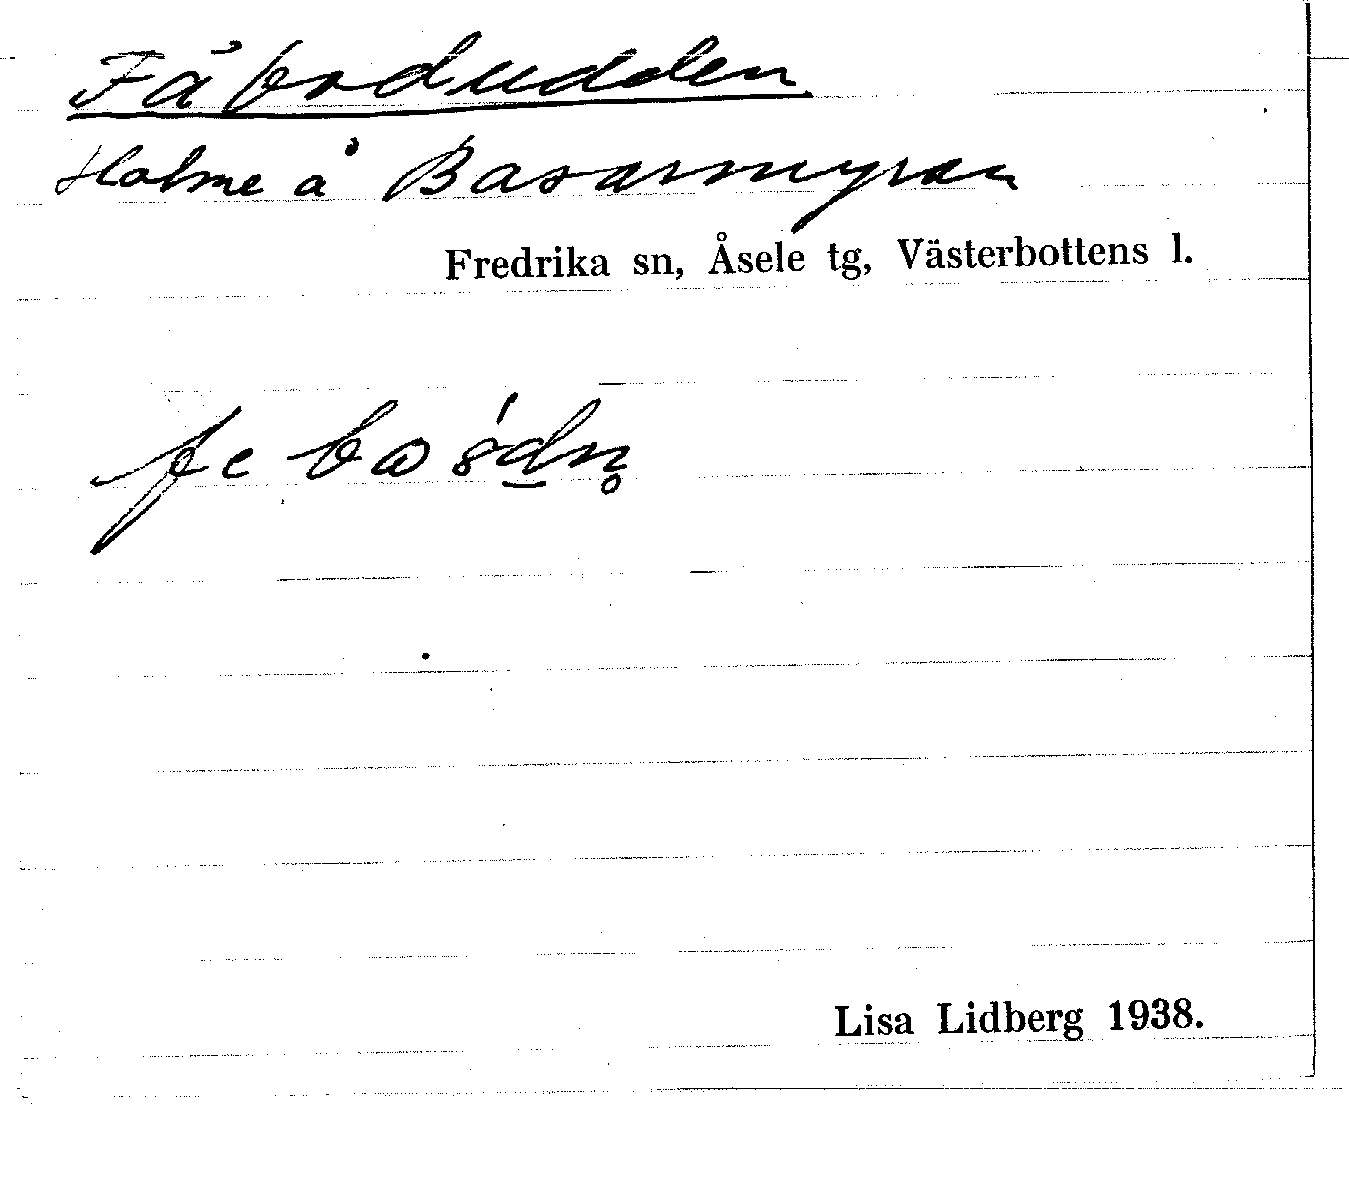 Fäbodudden
Holme å Basarmyran
Fredrika sn, Åsele tg, Västerbottens l.
Lisa Lidberg 1938.